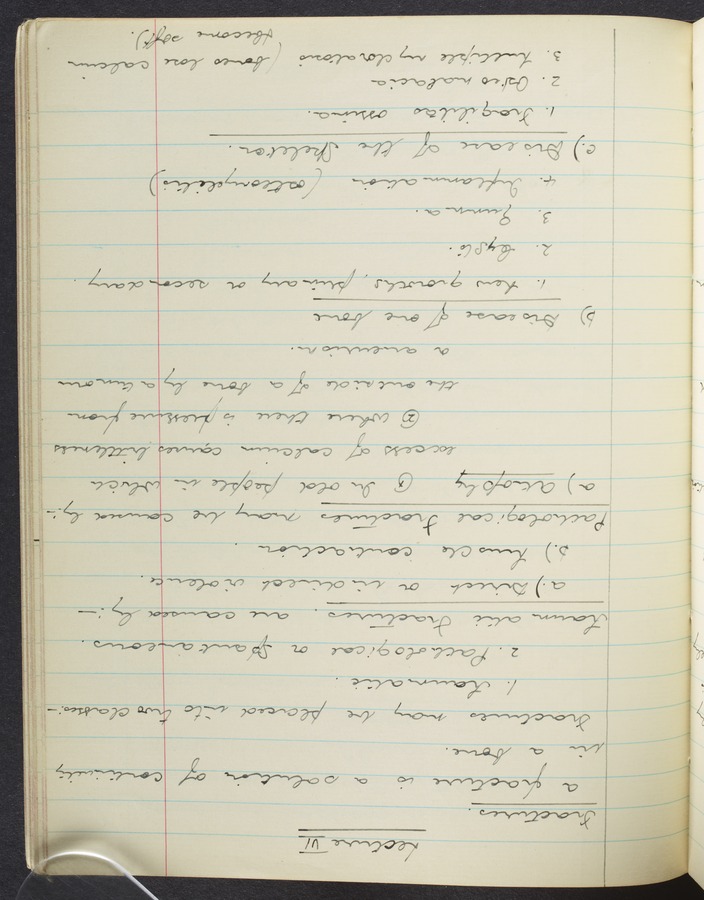 Lecture VI
Fractures.
a fracture is a solution of continuity
in a bone.
Fractures may be placed into two classes:-
1. Traumatic.
2. Pathological or Spontaneous.
Traumatic Fractures. are caused by:-
a.) Direct or indirect violence.
b.) Muscle contraction.
Pathological Fractures may be caused by:-
a) Atrophy ① In old people in which
excess of calcium causes brittleness
② Where there is pressure from
the outside of a bone by a tumour
a aneurism.
b) Disease of one bone
1. New growths, primary or secondary.
2. Cysts.
3. Gumma.
4. Inflammation (osteomyelitis)
c.) Disease of the Skeleton.
1. Fragilitas ossium.
2. Osteomalacia
3. Multiple myelomatosis (bones lose calcium
& become soft).